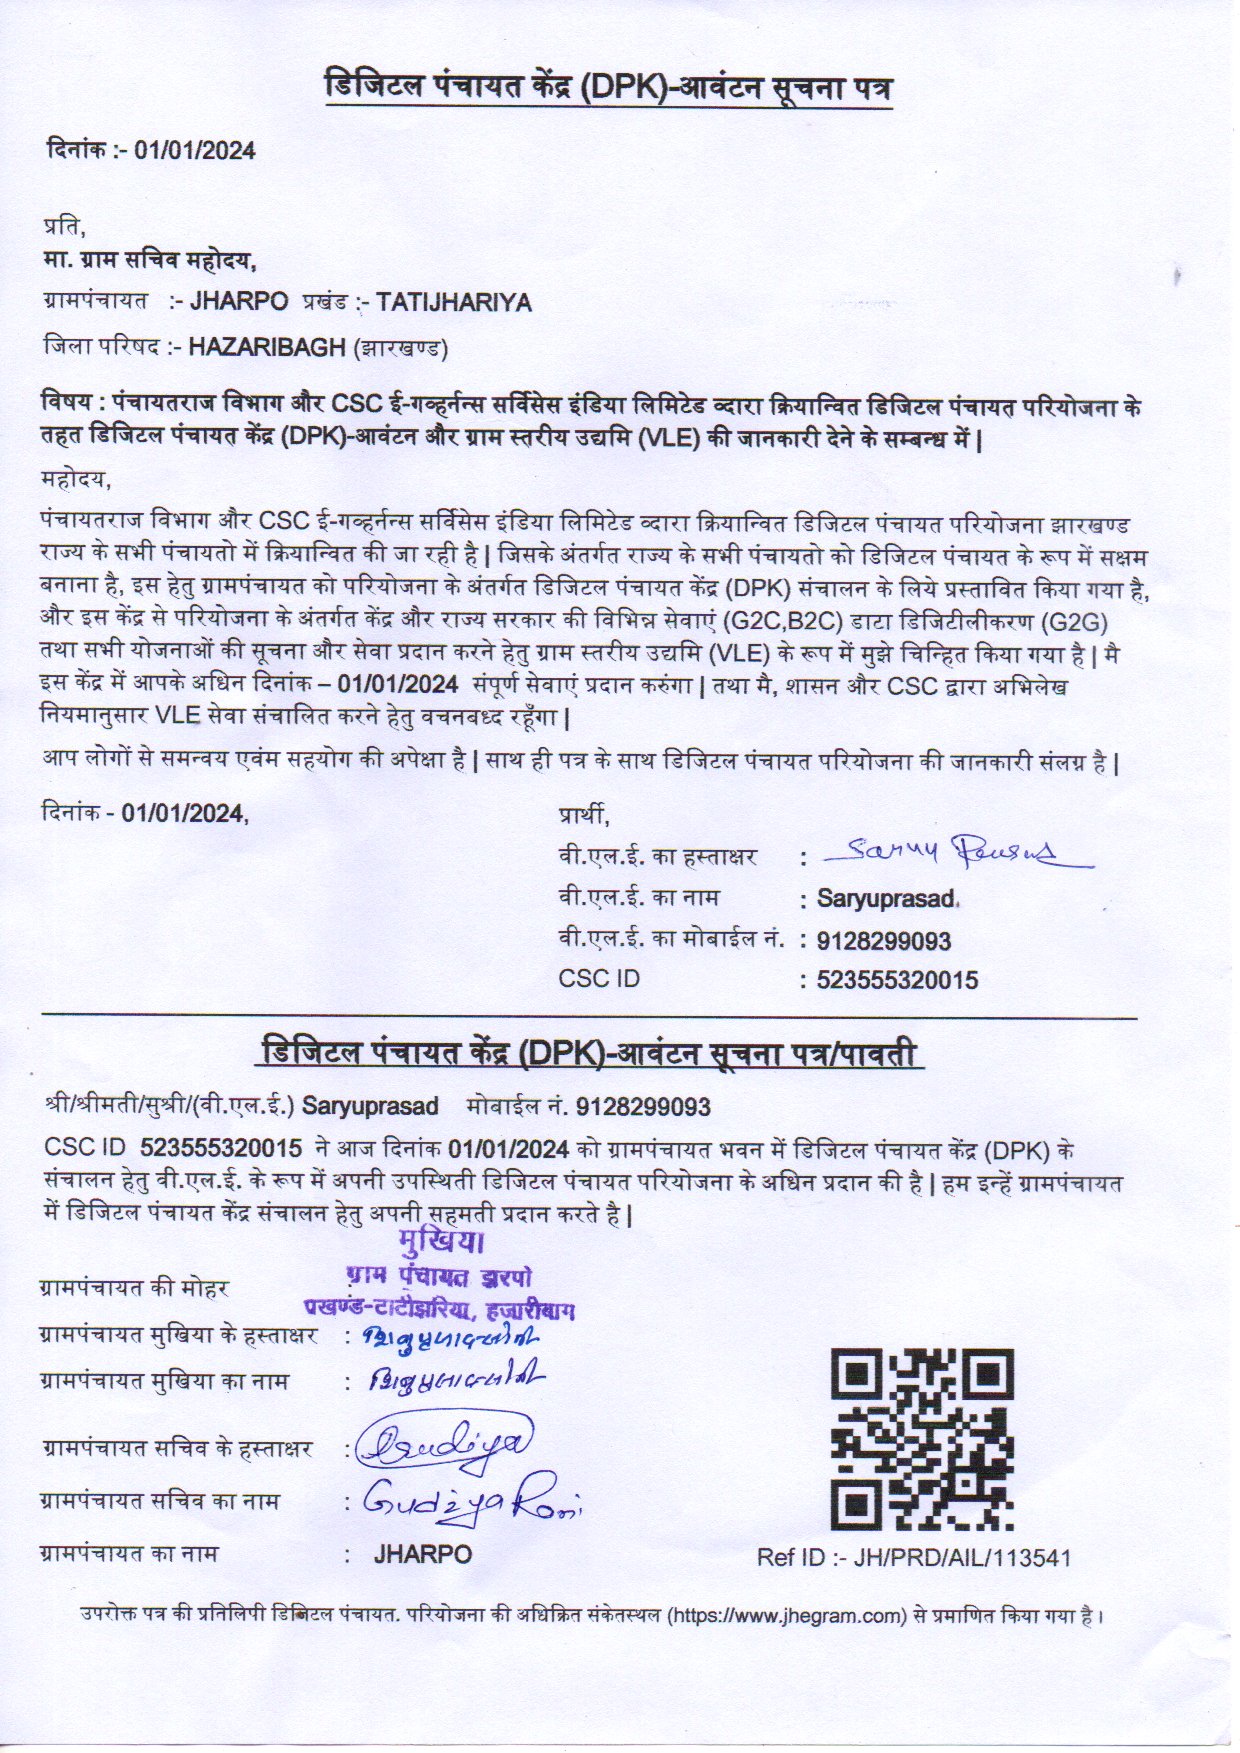 डिजिटल पंचायत केंद्र (DPK)-आवंटन सूचना पत्र
दिनांक :- 01/01/2024
प्रति,
मा. ग्राम सचिव महोदय,
ग्रामपंचायत :- JHARPO प्रखंड :- TATIJHARIYA
जिला परिषद :- HAZARIBAGH (झारखण्ड)
विषय : पंचायतराज विभाग और CSC ई-गव्हर्नन्स सर्विसेस इंडिया लिमिटेड व्दारा क्रियान्वित डिजिटल पंचायत परियोजना के
तहत डिजिटल पंचायत केंद्र (DPK)-आवंटन और ग्राम स्तरीय उद्यमि (VLE) की जानकारी देने के सम्बन्ध में |
महोदय,
पंचायतराज विभाग और CSC ई-गव्हर्नन्स सर्विसेस इंडिया लिमिटेड व्दारा क्रियान्वित डिजिटल पंचायत परियोजना झारखण्ड
राज्य के सभी पंचायतो में क्रियान्वित की जा रही है | जिसके अंतर्गत राज्य के सभी पंचायतो को डिजिटल पंचायत के रूप में सक्षम
बनाना है, इस हेतु ग्रामपंचायत को परियोजना के अंतर्गत डिजिटल पंचायत केंद्र (DPK) संचालन के लिये प्रस्तावित किया गया है,
और इस केंद्र से परियोजना के अंतर्गत केंद्र और राज्य सरकार की विभिन्न सेवाएं (G2C,B2C) डाटा डिजिटीलीकरण (G2G)
तथा सभी योजनाओं की सूचना और सेवा प्रदान करने हेतु ग्राम स्तरीय उद्यमि (VLE) के रूप में मुझे चिन्हित किया गया है | मै
इस केंद्र में आपके अधिन दिनांक – 01/01/2024 संपूर्ण सेवाएं प्रदान करुंगा | तथा मै, शासन और CSC द्वारा अभिलेख
नियमानुसार VLE सेवा संचालित करने हेतु वचनबध्द रहूँगा |
आप लोगों से समन्वय एवंम सहयोग की अपेक्षा है | साथ ही पत्र के साथ डिजिटल पंचायत परियोजना की जानकारी संलग्न है |
दिनांक - 01/01/2024,
प्रार्थी,
वी.एल.ई. का हस्ताक्षर :
वी.एल.ई. का नाम : Saryuprasad
वी.एल.ई. का मोबाईल नं. : 9128299093
CSC ID : 523555320015
डिजिटल पंचायत केंद्र (DPK)-आवंटन सूचना पत्र/पावती
श्री/श्रीमती/सुश्री/(वी.एल.ई.) Saryuprasad मोबाईल नं. 9128299093
CSC ID 523555320015 ने आज दिनांक 01/01/2024 को ग्रामपंचायत भवन में डिजिटल पंचायत केंद्र (DPK) के
संचालन हेतु वी.एल.ई. के रूप में अपनी उपस्थिती डिजिटल पंचायत परियोजना के अधिन प्रदान की है | हम इन्हें ग्रामपंचायत
में डिजिटल पंचायत केंद्र संचालन हेतु अपनी सहमती प्रदान करते है |
मुखिया
ग्राम पंचायत झरपो
प्रखण्ड-टाटीझरिया, हजारीबाग
ग्रामपंचायत की मोहर
ग्रामपंचायत मुखिया के हस्ताक्षर :
ग्रामपंचायत मुखिया का नाम :
ग्रामपंचायत सचिव के हस्ताक्षर : Gudiya
ग्रामपंचायत सचिव का नाम : Gudiya Rani
ग्रामपंचायत का नाम : JHARPO
Ref ID :- JH/PRD/AIL/113541
उपरोक्त पत्र की प्रतिलिपी डिजिटल पंचायत. परियोजना की अधिक्रित संकेतस्थल (https://www.jhegram.com) से प्रमाणित किया गया है ।